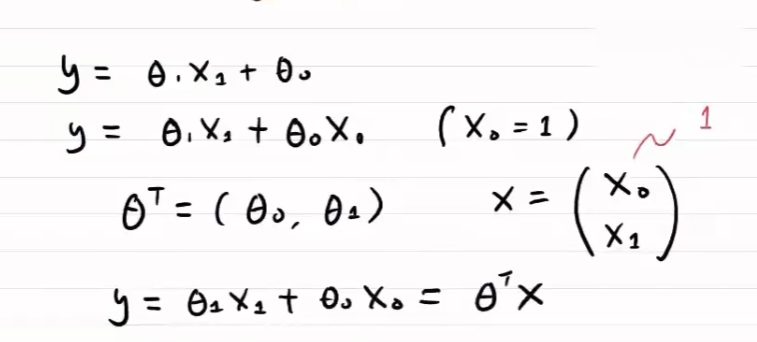 y = θ₁x₁ + θ₀
y = θ₁x₁ + θ₀x₀ (x₀ = 1) 1
θᵀ = (θ₀, θ₁) x = (x₀ x₁)
y = θ₁x₁ + θ₀x₀ = θᵀx